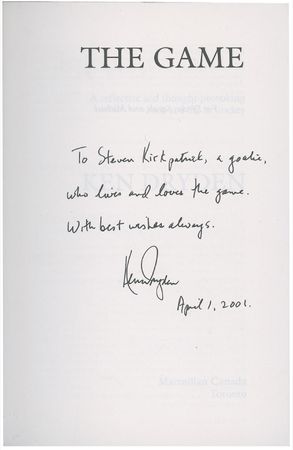 THE GAME
A reflective and thought-provoking
To Steven Kirkpatrick, a goalie,
KEN DRYDEN
who lives and loves the game.
With best wishes always.
Ken Dryden
April 1, 2001.
Macmillan Canada
Toronto